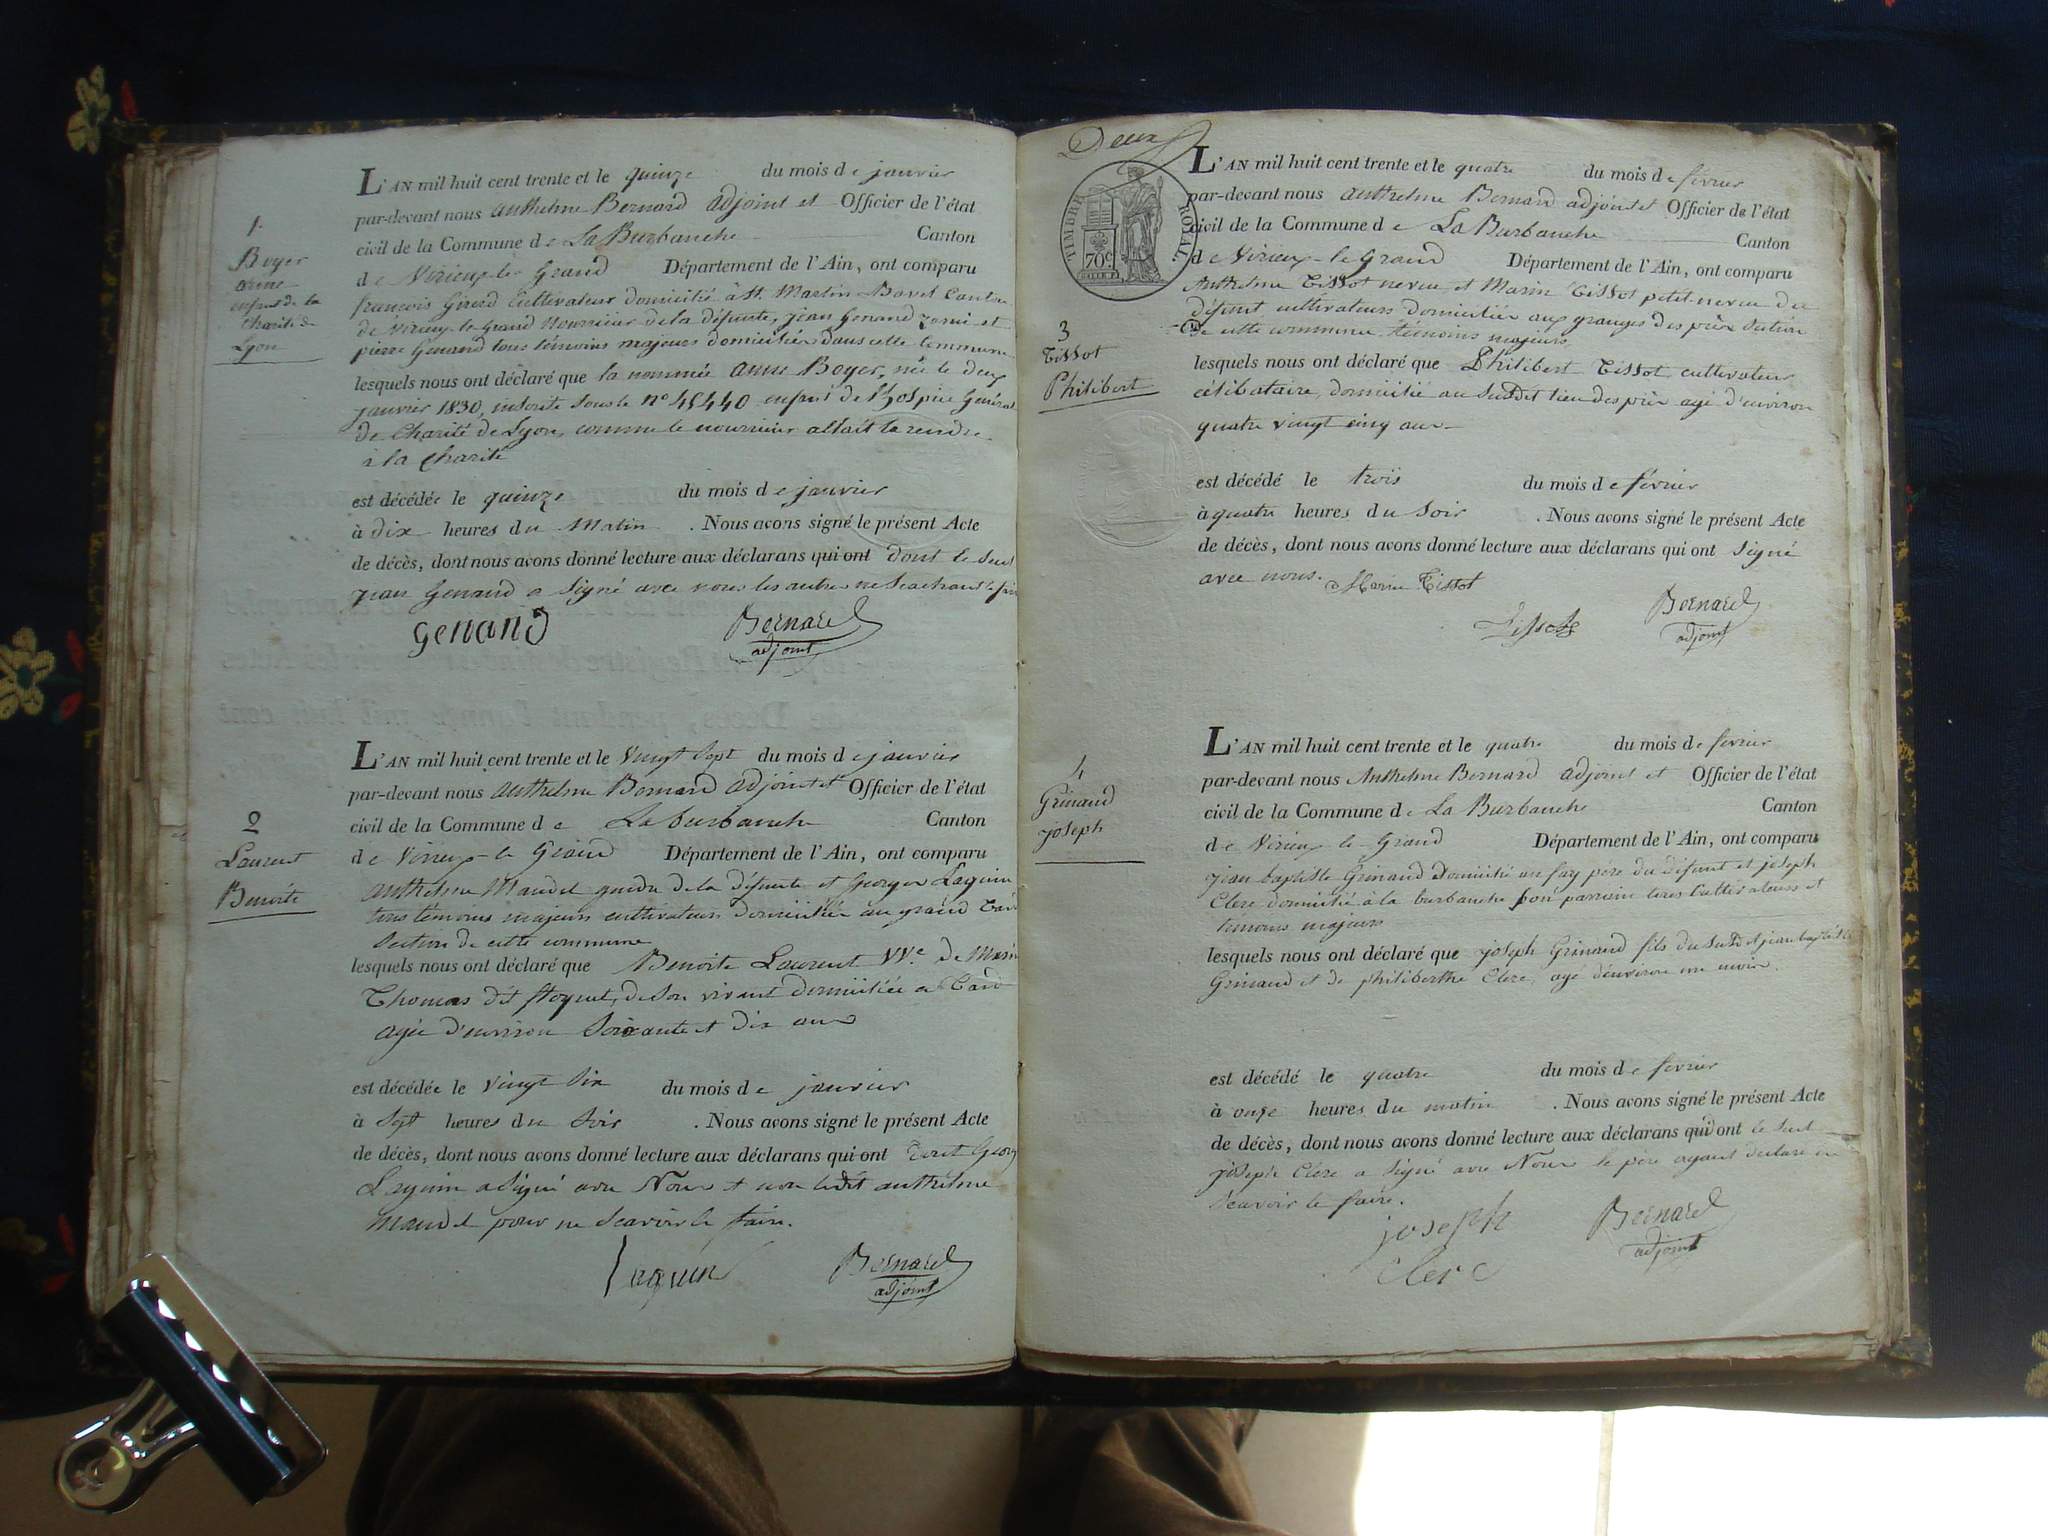 1.
Boyer
anne
enfant de la
charité de
Lyon
L'AN mil huit cent trente et le quinze du mois de janvier
par-devant nous anthelme Bernard adjoint et Officier de l'état
civil de la Commune de La Burbanche Canton
de Virieu-le Grand Département de l'Ain, ont comparu
françois Girerd Cultivateur domicilié à St. Martin Bavel Canton
de Virieu-le Grand Nourricier de la défunte, jean Genand et
pierre Genand tous témoins majeurs domiciliés dans cette Commune
lesquels nous ont déclaré que la nommée anne Boyer, née le deux
janvier 1830, inscrite sous le n° 45440 enfant de l'hospice Général
de Charité de Lyon, comme le nourricier allait la rendre
à la Charité
est décédée le quinze du mois de janvier
à dix heures du Matin . Nous avons signé le présent Acte
de décès, dont nous avons donné lecture aux déclarans qui ont dont le seul
jean Genand a signé avec nous les autres ne Scachant le faire
genand
Bernard
adjoint
2
Laurent
Benoite
L'AN mil huit cent trente et le vingt Sept du mois de janvier
par-devant nous anthelme Bernard adjoint et Officier de l'état
civil de la Commune de La burbanche Canton
de Virieu-le Grand Département de l'Ain, ont comparu
anthelme Mandet de la défunte et George Laguin
tous témoins majeurs cultivateurs domiciliés au grand
Section de cette commune
lesquels nous ont déclaré que Benoite Laurent VVe de Marin
Thomas dit de son vivant domiciliée a
agée d'environ Soixante et dix ans
est décédée le vingt Six du mois de janvier
à Sept heures du Soir . Nous avons signé le présent Acte
de décès, dont nous avons donné lecture aux déclarans qui ont
Laguin a Signé avec Nous et non ledit anthelme
mandet pour ne Scavoir le faire.
Laguin
Bernard
adjoint
Deux
TIMBRE ROYAL
70c
3
Tissot
Philibert
L'AN mil huit cent trente et le quatre du mois de février
par-devant nous anthelme Bernard adjoint et Officier de l'état
civil de la Commune de La Burbanche Canton
de Virieu-le Grand Département de l'Ain, ont comparu
Anthelme Tissot neveu et Marin Tissot petit-neveu du
défunt cultivateurs domiciliés aux granges des Section
de cette commune témoins majeurs
lesquels nous ont déclaré que Philibert Tissot cultivateur
célibataire, domicilié au Susdit lieu des agé d'environ
quatre vingt cinq ans
est décédé le trois du mois de février
à quatre heures du Soir . Nous avons signé le présent Acte
de décès, dont nous avons donné lecture aux déclarans qui ont Signé
avec nous.
Marin Tissot
Tissot
Bernard
adjoint
4
Grinand
joseph
L'AN mil huit cent trente et le quatre du mois de février
par-devant nous Anthelme Bernard adjoint et Officier de l'état
civil de la Commune de La Burbanche Canton
de Virieu-le-Grand Département de l'Ain, ont comparu
jean baptiste Grinand domicilié au fay père du défunt et joseph
Clerc domicilié à la burbanche Son parrain Cultivateurs et
témoins majeurs
lesquels nous ont déclaré que joseph Grinand fils du Susdit jean baptiste
Grinand et de philiberthe Clerc, agé d'environ un mois
est décédé le quatre du mois de février
à onze heures du matin . Nous avons signé le présent Acte
de décès, dont nous avons donné lecture aux déclarans qui ont le Seul
joseph Clerc a Signé avec Nous le père ayant déclaré ne
Scavoir le faire.
joseph
clerc
Bernard
adjoint